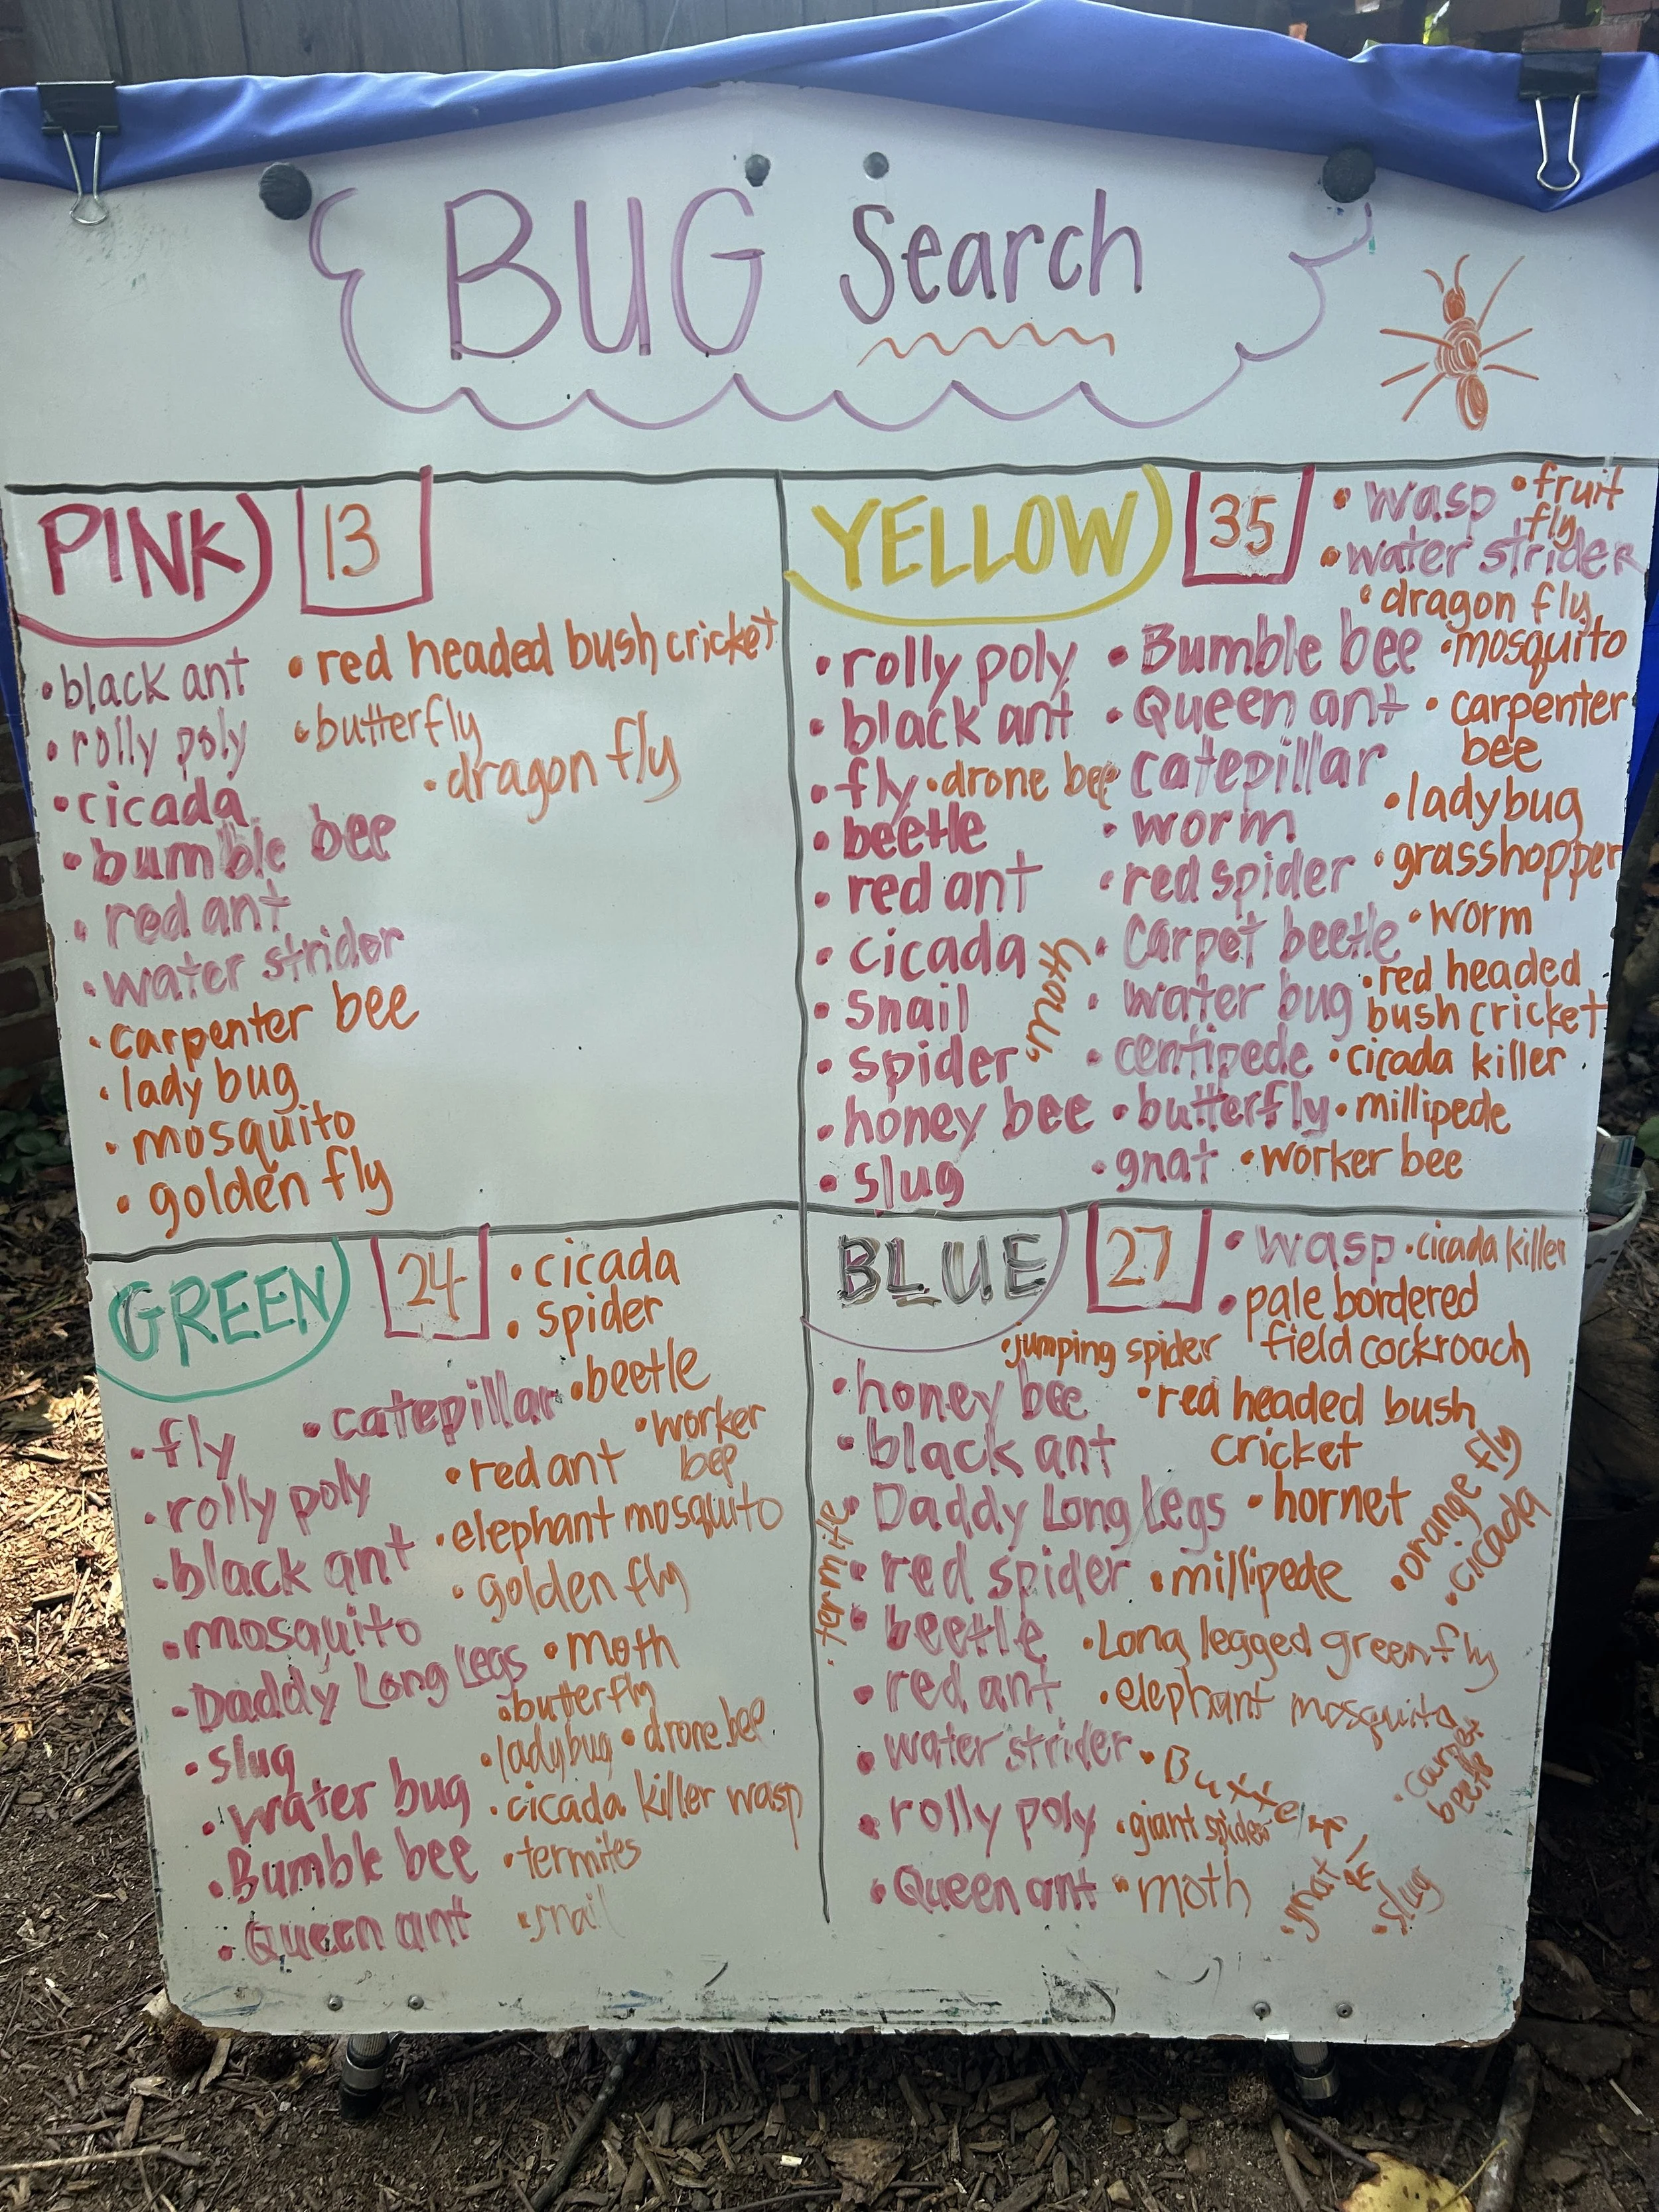 BUG Search
PINK 13
• black ant
• rolly poly
• cicada
• bumble bee
• red ant
• water strider
• carpenter bee
• lady bug
• mosquito
• golden fly
• red headed bush cricket
• butterfly
• dragon fly
YELLOW 35
• rolly poly
• black ant
• fly
• drone bee
• beetle
• red ant
• cicada
• snail
• spider
• honey bee
• slug
• Bumble bee
• Queen ant
• catepillar
• worm
• red spider
• Carpet beetle
• water bug
• centipede
• butterfly
• gnat
• wasp
• fruit
fly
• water strider
• dragon fly
• mosquito
• carpenter
bee
• ladybug
• grasshopper
• worm
• red headed
bush cricket
• cicada killer
• millipede
• worker bee
GREEN 24
• fly
• rolly poly
• black ant
• mosquito
• Daddy Long Legs
• slug
• water bug
• Bumble bee
• Queen ant
• catepillar
• cicada
• spider
• beetle
• worker
bee
• red ant
• elephant mosquito
• golden fly
• moth
• butterfly
• ladybug
• drone bee
• cicada killer wasp
• termites
• snail
BLUE 27
• wasp
• cicada killer
• pale bordered
field cockroach
• jumping spider
• honey bee
• black ant
• Daddy Long Legs
• red spider
• beetle
• red ant
• water strider
• rolly poly
• Queen ant
• termite
• red headed bush
cricket
• hornet
• orange fly
• cicada
• millipede
• Long legged green fly
• elephant mosquito
• carpet
beetle
• giant spider
• moth
• gnat
• slug